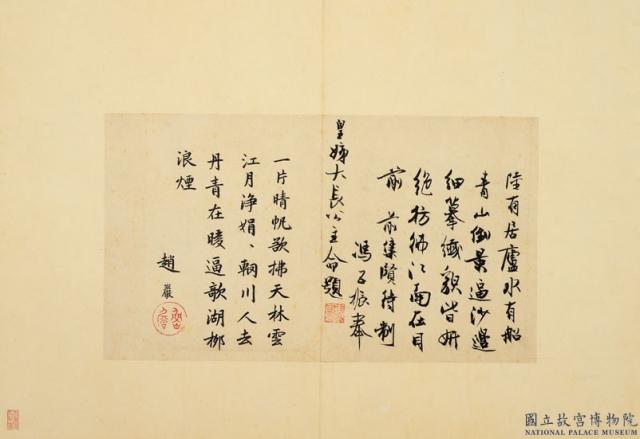 陸有居廬水有船
青山倒景逼沙邊
細摹纖貌皆妍
絕彷彿江南在目
前 前集賢待制
馮子振奉
皇姊大長公主命題
一片晴帆欲拂天林雲
江月淨娟、輞川人去
丹青在逼欹湖柳
浪煙
趙巖
國立故宮博物院
NATIONAL PALACE MUSEUM